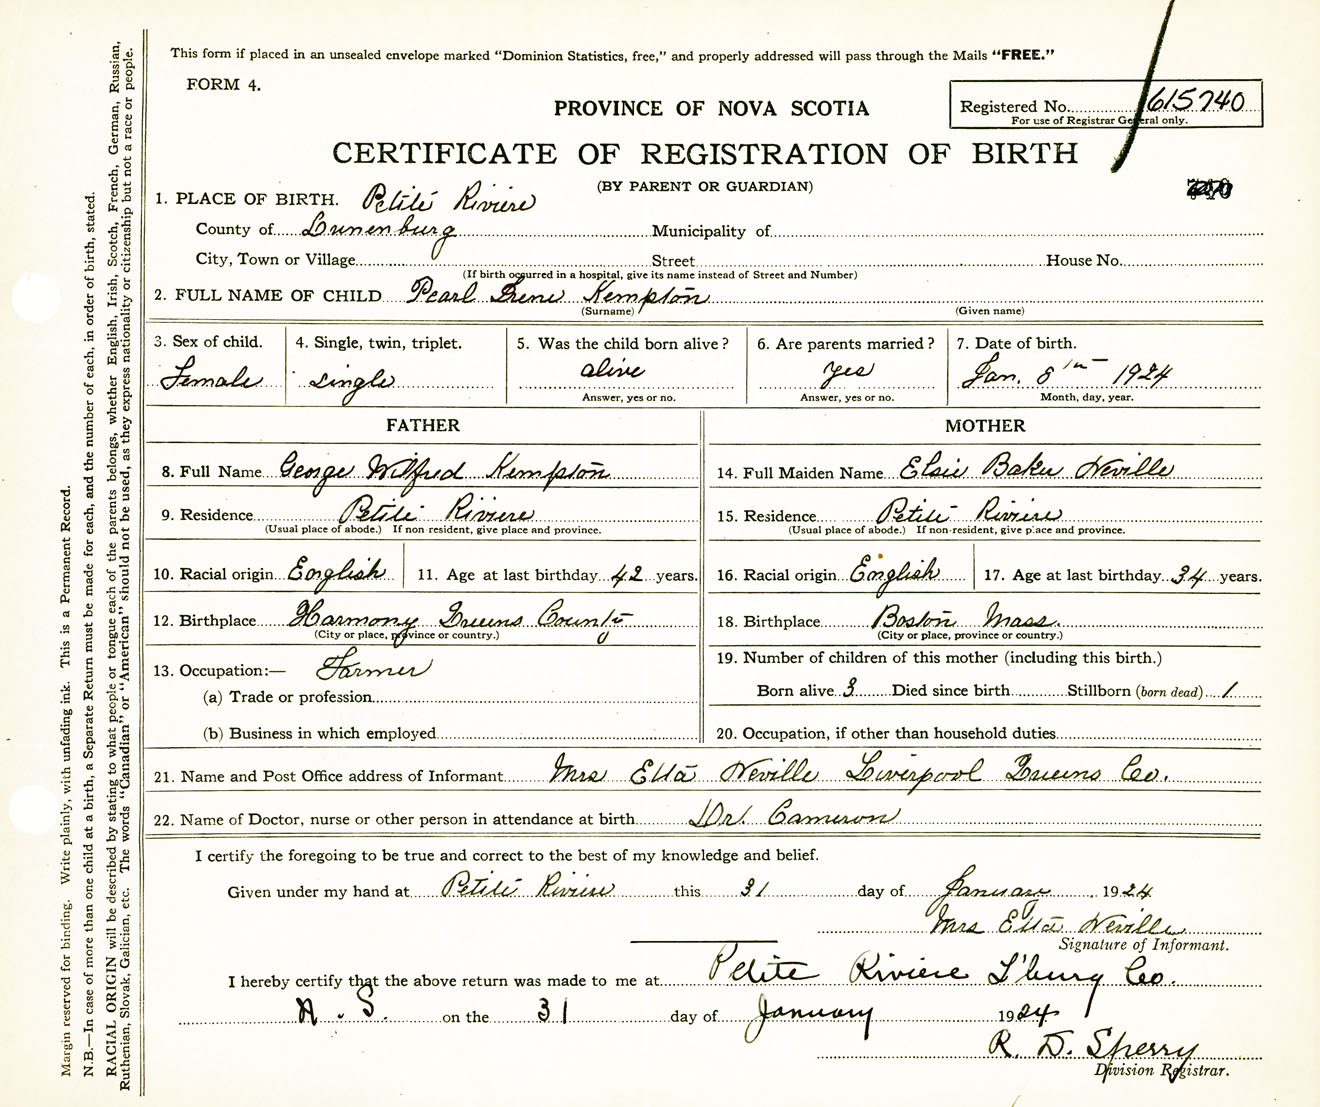 This form if placed in an unsealed envelope marked "Dominion Statistics, free," and properly addressed will pass through the Mails "FREE."
FORM 4.
PROVINCE OF NOVA SCOTIA
Registered No. 615740
For use of Registrar General only.
CERTIFICATE OF REGISTRATION OF BIRTH
(BY PARENT OR GUARDIAN)
1. PLACE OF BIRTH. Petite Riviere
County of Lunenburg Municipality of
City, Town or Village Street House No.
(If birth occurred in a hospital, give its name instead of Street and Number)
2. FULL NAME OF CHILD Pearl Irene Kempton
(Surname) (Given name)
3. Sex of child. 4. Single, twin, triplet. 5. Was the child born alive? 6. Are parents married? 7. Date of birth.
Female single alive yes Jan. 8th 1924
Answer, yes or no. Answer, yes or no. Month, day, year.
FATHER MOTHER
8. Full Name George Wilfred Kempton 14. Full Maiden Name Elsie Baker Neville
9. Residence Petite Riviere 15. Residence Petite Riviere
(Usual place of abode.) If non-resident, give place and province. (Usual place of abode.) If non-resident, give place and province.
10. Racial origin English 11. Age at last birthday 42 years. 16. Racial origin English 17. Age at last birthday 34 years.
12. Birthplace Harmony Queens County 18. Birthplace Boston Mass.
(City or place, province or country.) (City or place, province or country.)
13. Occupation:— Farmer 19. Number of children of this mother (including this birth.)
(a) Trade or profession Born alive 3 Died since birth Stillborn (born dead) 1
(b) Business in which employed 20. Occupation, if other than household duties
21. Name and Post Office address of Informant Mrs Etta Neville Liverpool Queens Co.
22. Name of Doctor, nurse or other person in attendance at birth Dr. Cameron
I certify the foregoing to be true and correct to the best of my knowledge and belief.
Given under my hand at Petite Riviere this 31 day of January 1924
Mrs Etta Neville
Signature of Informant.
I hereby certify that the above return was made to me at Petite Riviere L'burg Co.
N. S. on the 31 day of January 1924
R. D. Sperry
Division Registrar.
Margin reserved for binding. Write plainly, with unfading ink. This is a Permanent Record.
N.B.—In case of more than one child at a birth, a Separate Return must be made for each, and the number of each, in order of birth, stated.
RACIAL ORIGIN will be described by stating to what people or tongue each of the parents belongs, whether English, Irish, Scotch, French, German, Russian,
Ruthenian, Slovak, Galician, etc. The words "Canadian" or "American" should not be used, as they express nationality or citizenship but not a race or people.